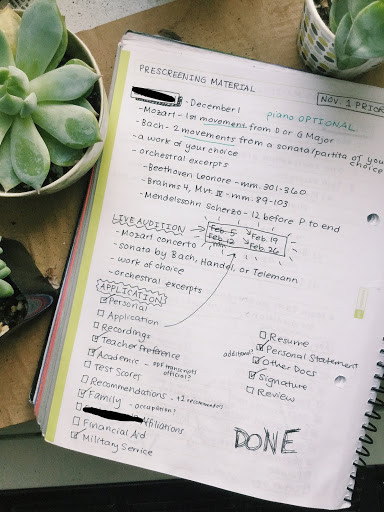 PRESCREENING MATERIAL
NOV. 1 PRIOR
- December 1
piano OPTIONAL
- Mozart - 1st movement from D or G Major
- Bach - 2 movements from a sonata/partita of your choice
- a work of your choice
- orchestral excerpts
- Beethoven Leonore - mm. 301-360
- Brahms 4, Mvt. IV - mm. 89-103
- Mendelssohn Scherzo - 12 before P to end
LIVE AUDITION
Feb. 5 Feb. 19
Feb. 12 Feb. 26
- Mozart concerto
- sonata by Bach, Handel, or Telemann
- work of choice
- orchestral excerpts
APPLICATION
Personal
Application
Recordings
Teacher Preference
Academic - PDF transcripts official?
Test Scores
Recommendations - +2 recommenders
Family - occupation?
Affiliations
Financial Aid
Military Service
Resume
additional? Personal Statement
Other Docs
Signature
Review
DONE